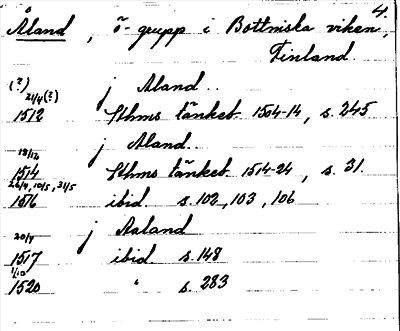 4.
Åland, ö-grupp i Bottniska viken,
Finland.
(?) j Aland..
21/4(?)
1512 Sthms tänkeb. 1504-14, s. 245
j Aland..
18/12
1514 Sthms tänkeb. 1514-24, s. 31.
26/4, 10/5, 31/5
1516 ibid. s. 102, 103, 106
j Aaland
20/4
1517 ibid. s. 148
1/10
1520 " s. 283